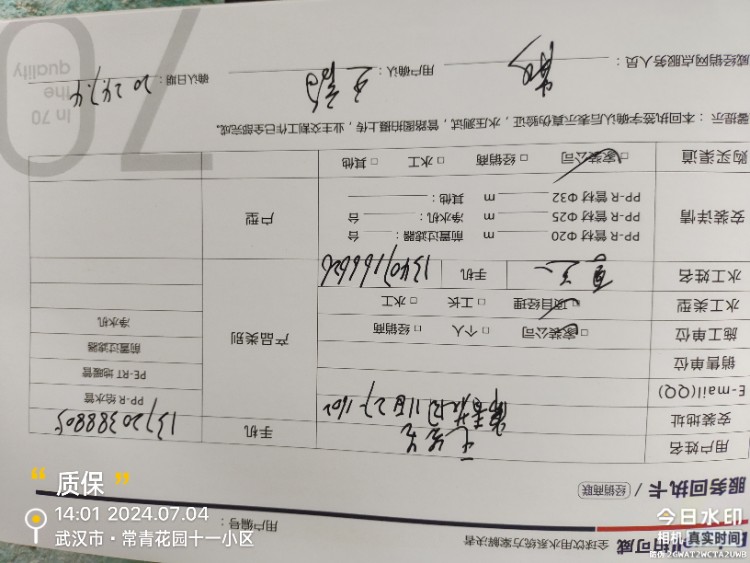 全球饮用水系统方案解决者
用户编号：
服务回执卡 / 经销商联
用户姓名 王先生 手机 13720388805
安装地址 11西27-1602
E-mail(QQ)
销售单位
施工单位 □家装公司 □个人 □经销商
水工类型 □项目经理 □工长 □水工
水工姓名 手机 13407166626
产品类别
PP-R 给水管
PE-RT 地暖管
前置过滤器
净水机
安装详情
PP-R 管材 Φ20 m 前置过滤器： 台
PP-R 管材 Φ25 m 净水机： 台
PP-R 管材 Φ32 m 其他：
户型
购买渠道 □家装公司 □经销商 □水工 □其他
提示：本回执签字确认后表示真伪验证，水压测试，管路图拍摄上传，业主交割工作已全部完成。
威经销网点服务人员： 用户确认： 确认日期： 2024.7.4
In 70
the
quality
70
“质保”
14:01 2024.07.04
武汉市·常青花园十一小区
今日水印
相机 真实时间
防伪 2GWAT2WCTA2UWB